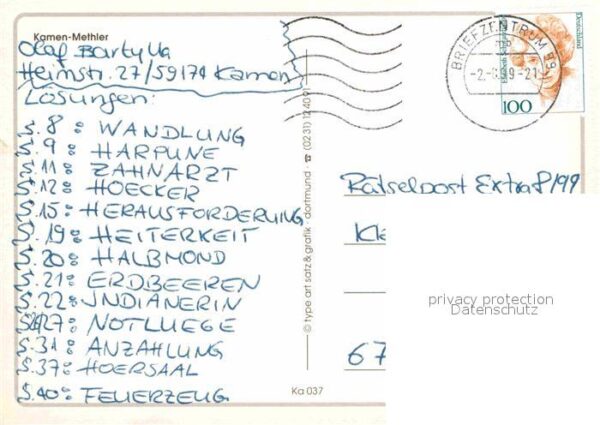 Kamen-Methler
Olaf Bartylla
Heimstr. 27/59174 Kamen
Lösungen:
S. 8: WANDLUNG
S. 9: HARPUNE
S. 11: ZAHNARZT
S. 12: HOECKER
S. 15: HERAUSFORDERUNG
S. 19: HEITERKEIT
S. 20: HALBMOND
S. 21: ERDBEEREN
S. 22: INDIANERIN
S. 26/27: NOTLUEGE
S. 31: ANZAHLUNG
S. 37: HOERSAAL
S. 40: FEUERZEUG
© type art satz & grafik · dortmund · ☎ (0231) 124091
Ka 037
BRIEFZENTRUM 59
99-21
Deutschland
100
Rätselpost Extra 8/99
67
privacy protection
Datenschutz